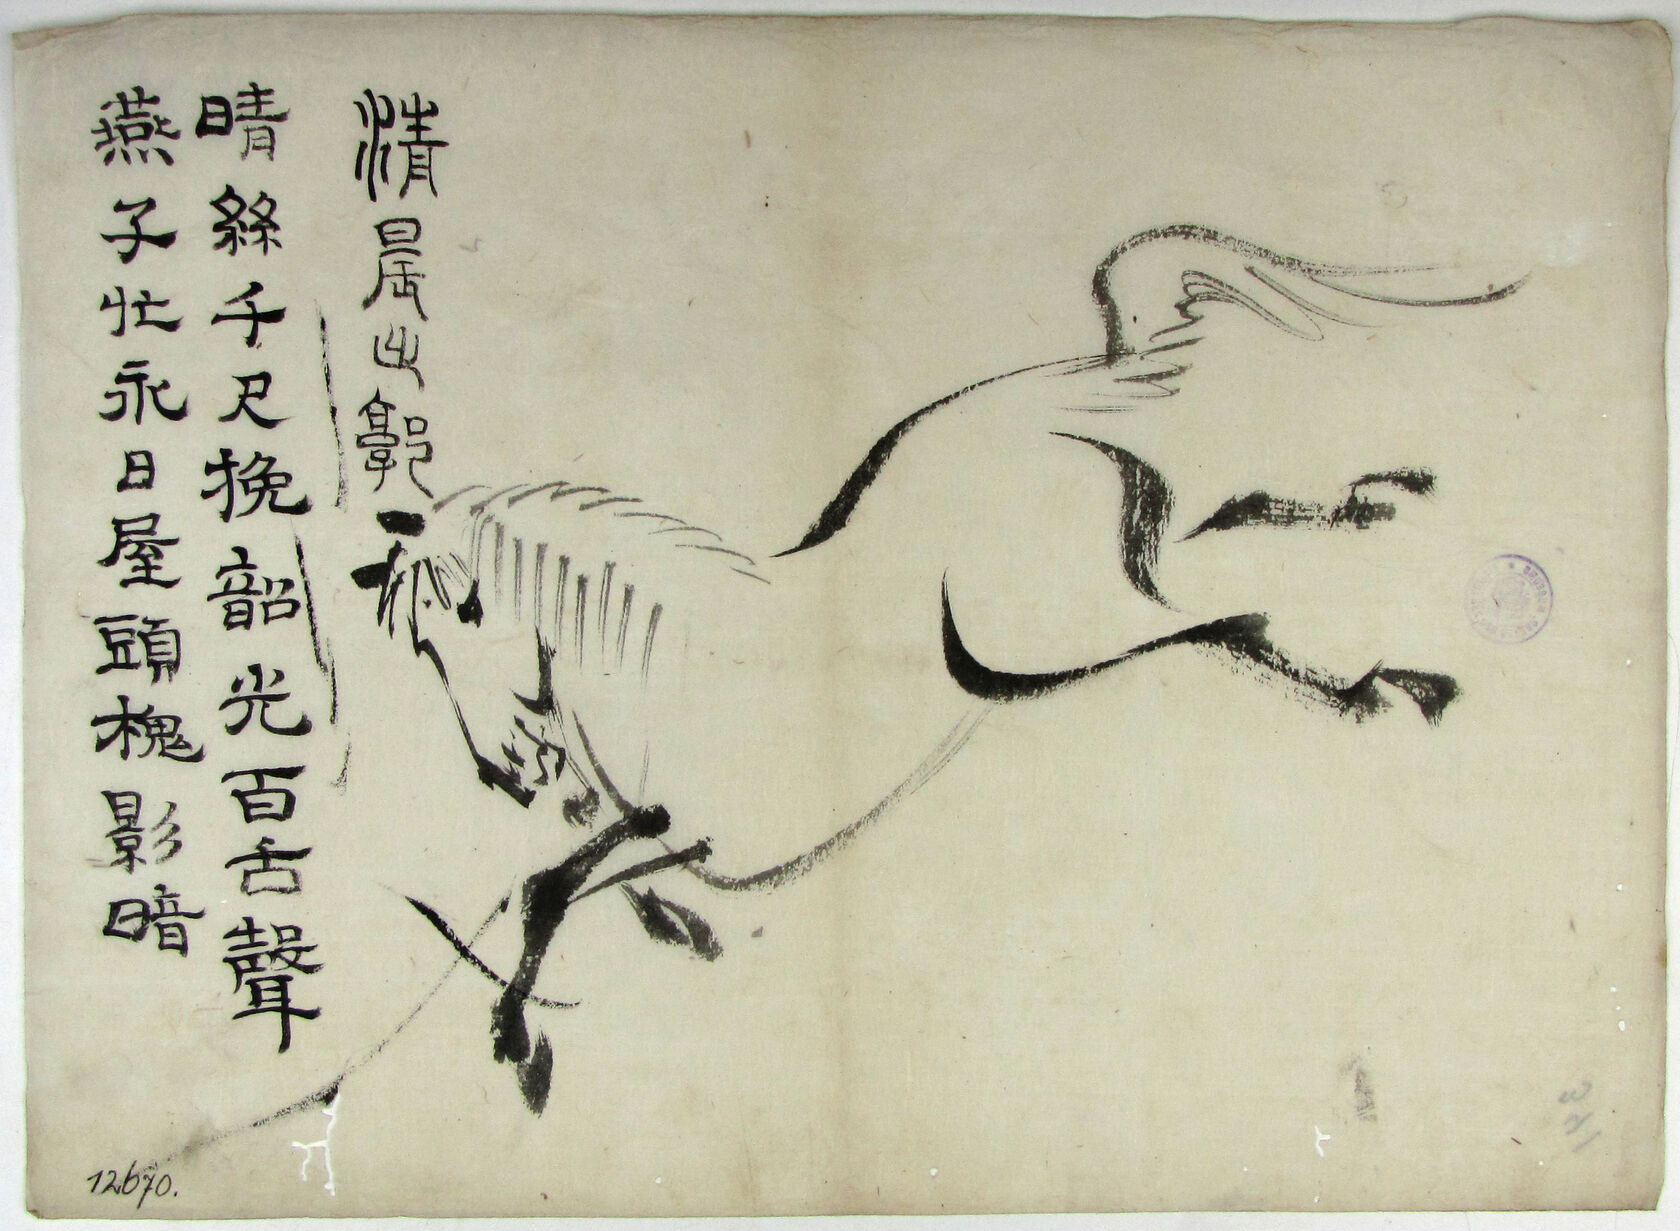 清晨出郭
晴絲千尺挽韶光百舌聲
燕子忙永日屋頭槐影暗
12670.